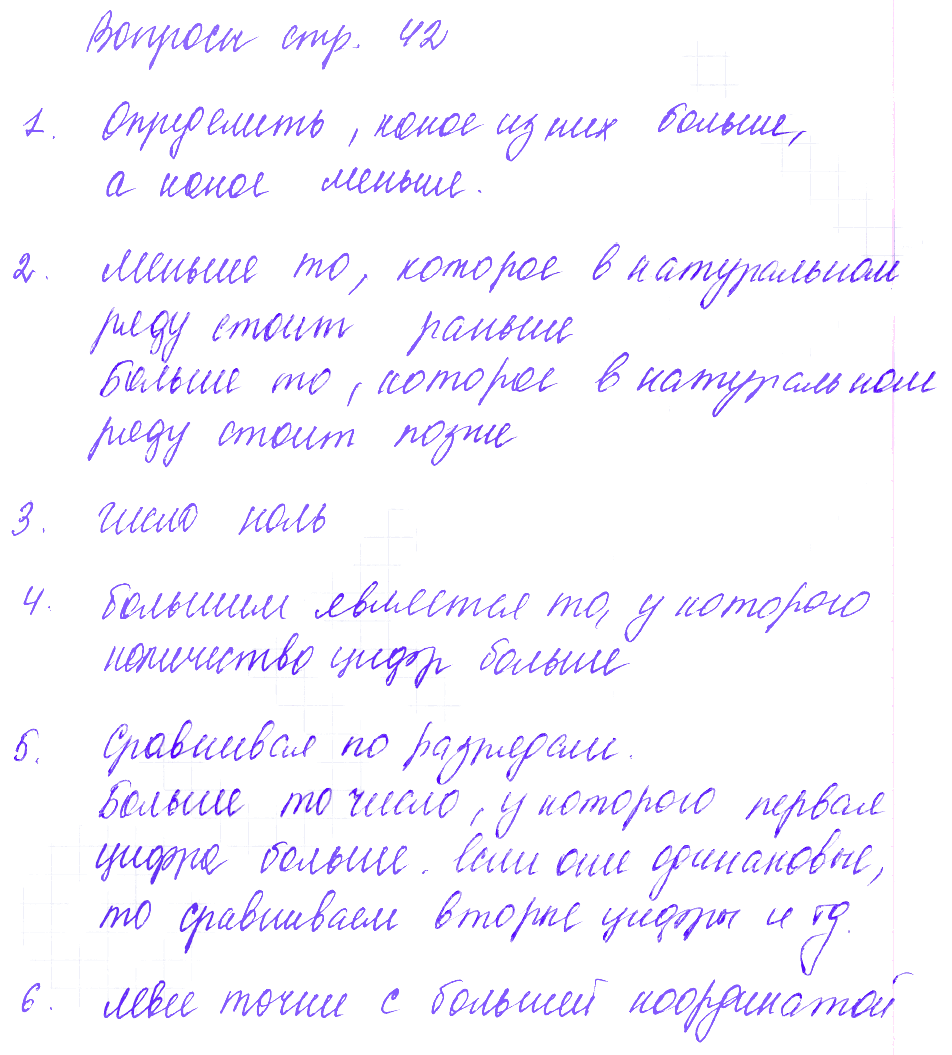 Вопросы стр. 42
1. Определить, какое из них больше,
а какое меньше.
2. Меньше то, которое в натуральном
ряду стоит раньше
Больше то, которое в натуральном
ряду стоит позже
3. Число ноль
4. Большим является то, у которого
количество цифр больше
5. Сравнивая по разрядам.
Больше то число, у которого первая
цифра больше. Если они одинаковые,
то сравниваем вторые цифры и тд.
6. левее точки с большей координатой